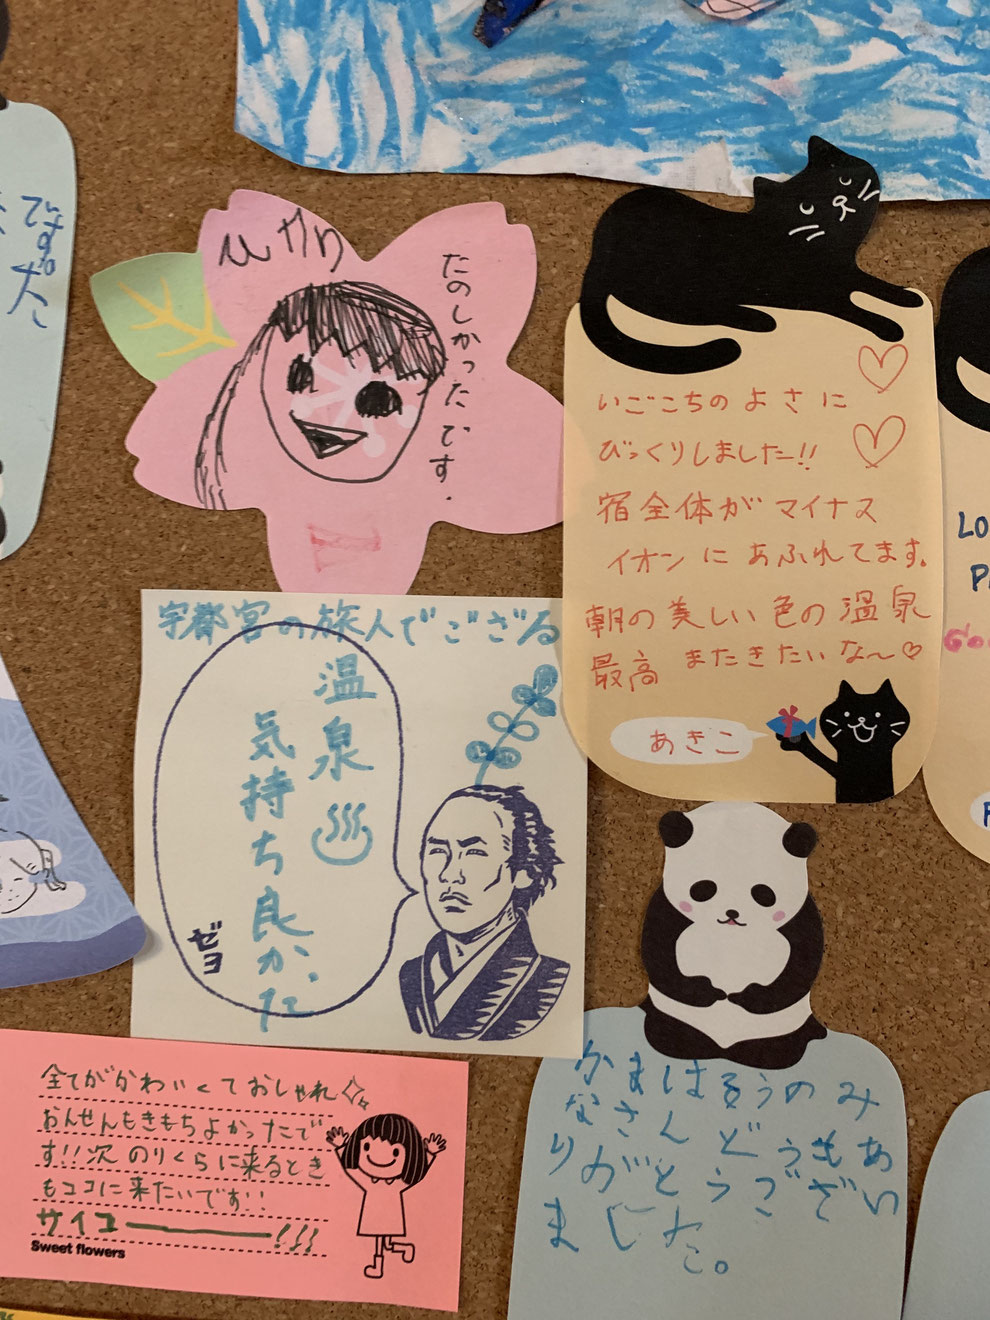 です。
た
ひかり
たのしかったです。
いごこちのよさに
びっくりしました!!
宿全体がマイナス
イオンにあふれてます。
朝の美しい色の温泉
最高 またきたいな〜♡
あきこ
LO
P
宇都宮の旅人でござる
温泉♨
気持ち良かった
ゼヨ
全てがかわいくておしゃれ✧
おんせんもきもちよかったで
す!!次のりくらに来るとき
もココに来たいです!!
サイコー!!!
Sweet flowers
かまはろうのみ
なさんどうもあ
りがとうござい
ました。